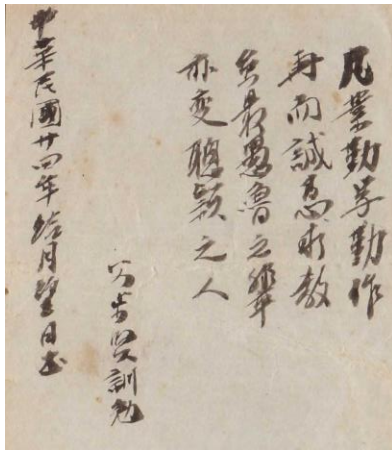 凡業勤學勤作
再而誠意求教
至最愚魯之輩
亦變聰穎之人
父步賢訓勉
中華民國廿四年 月望日書